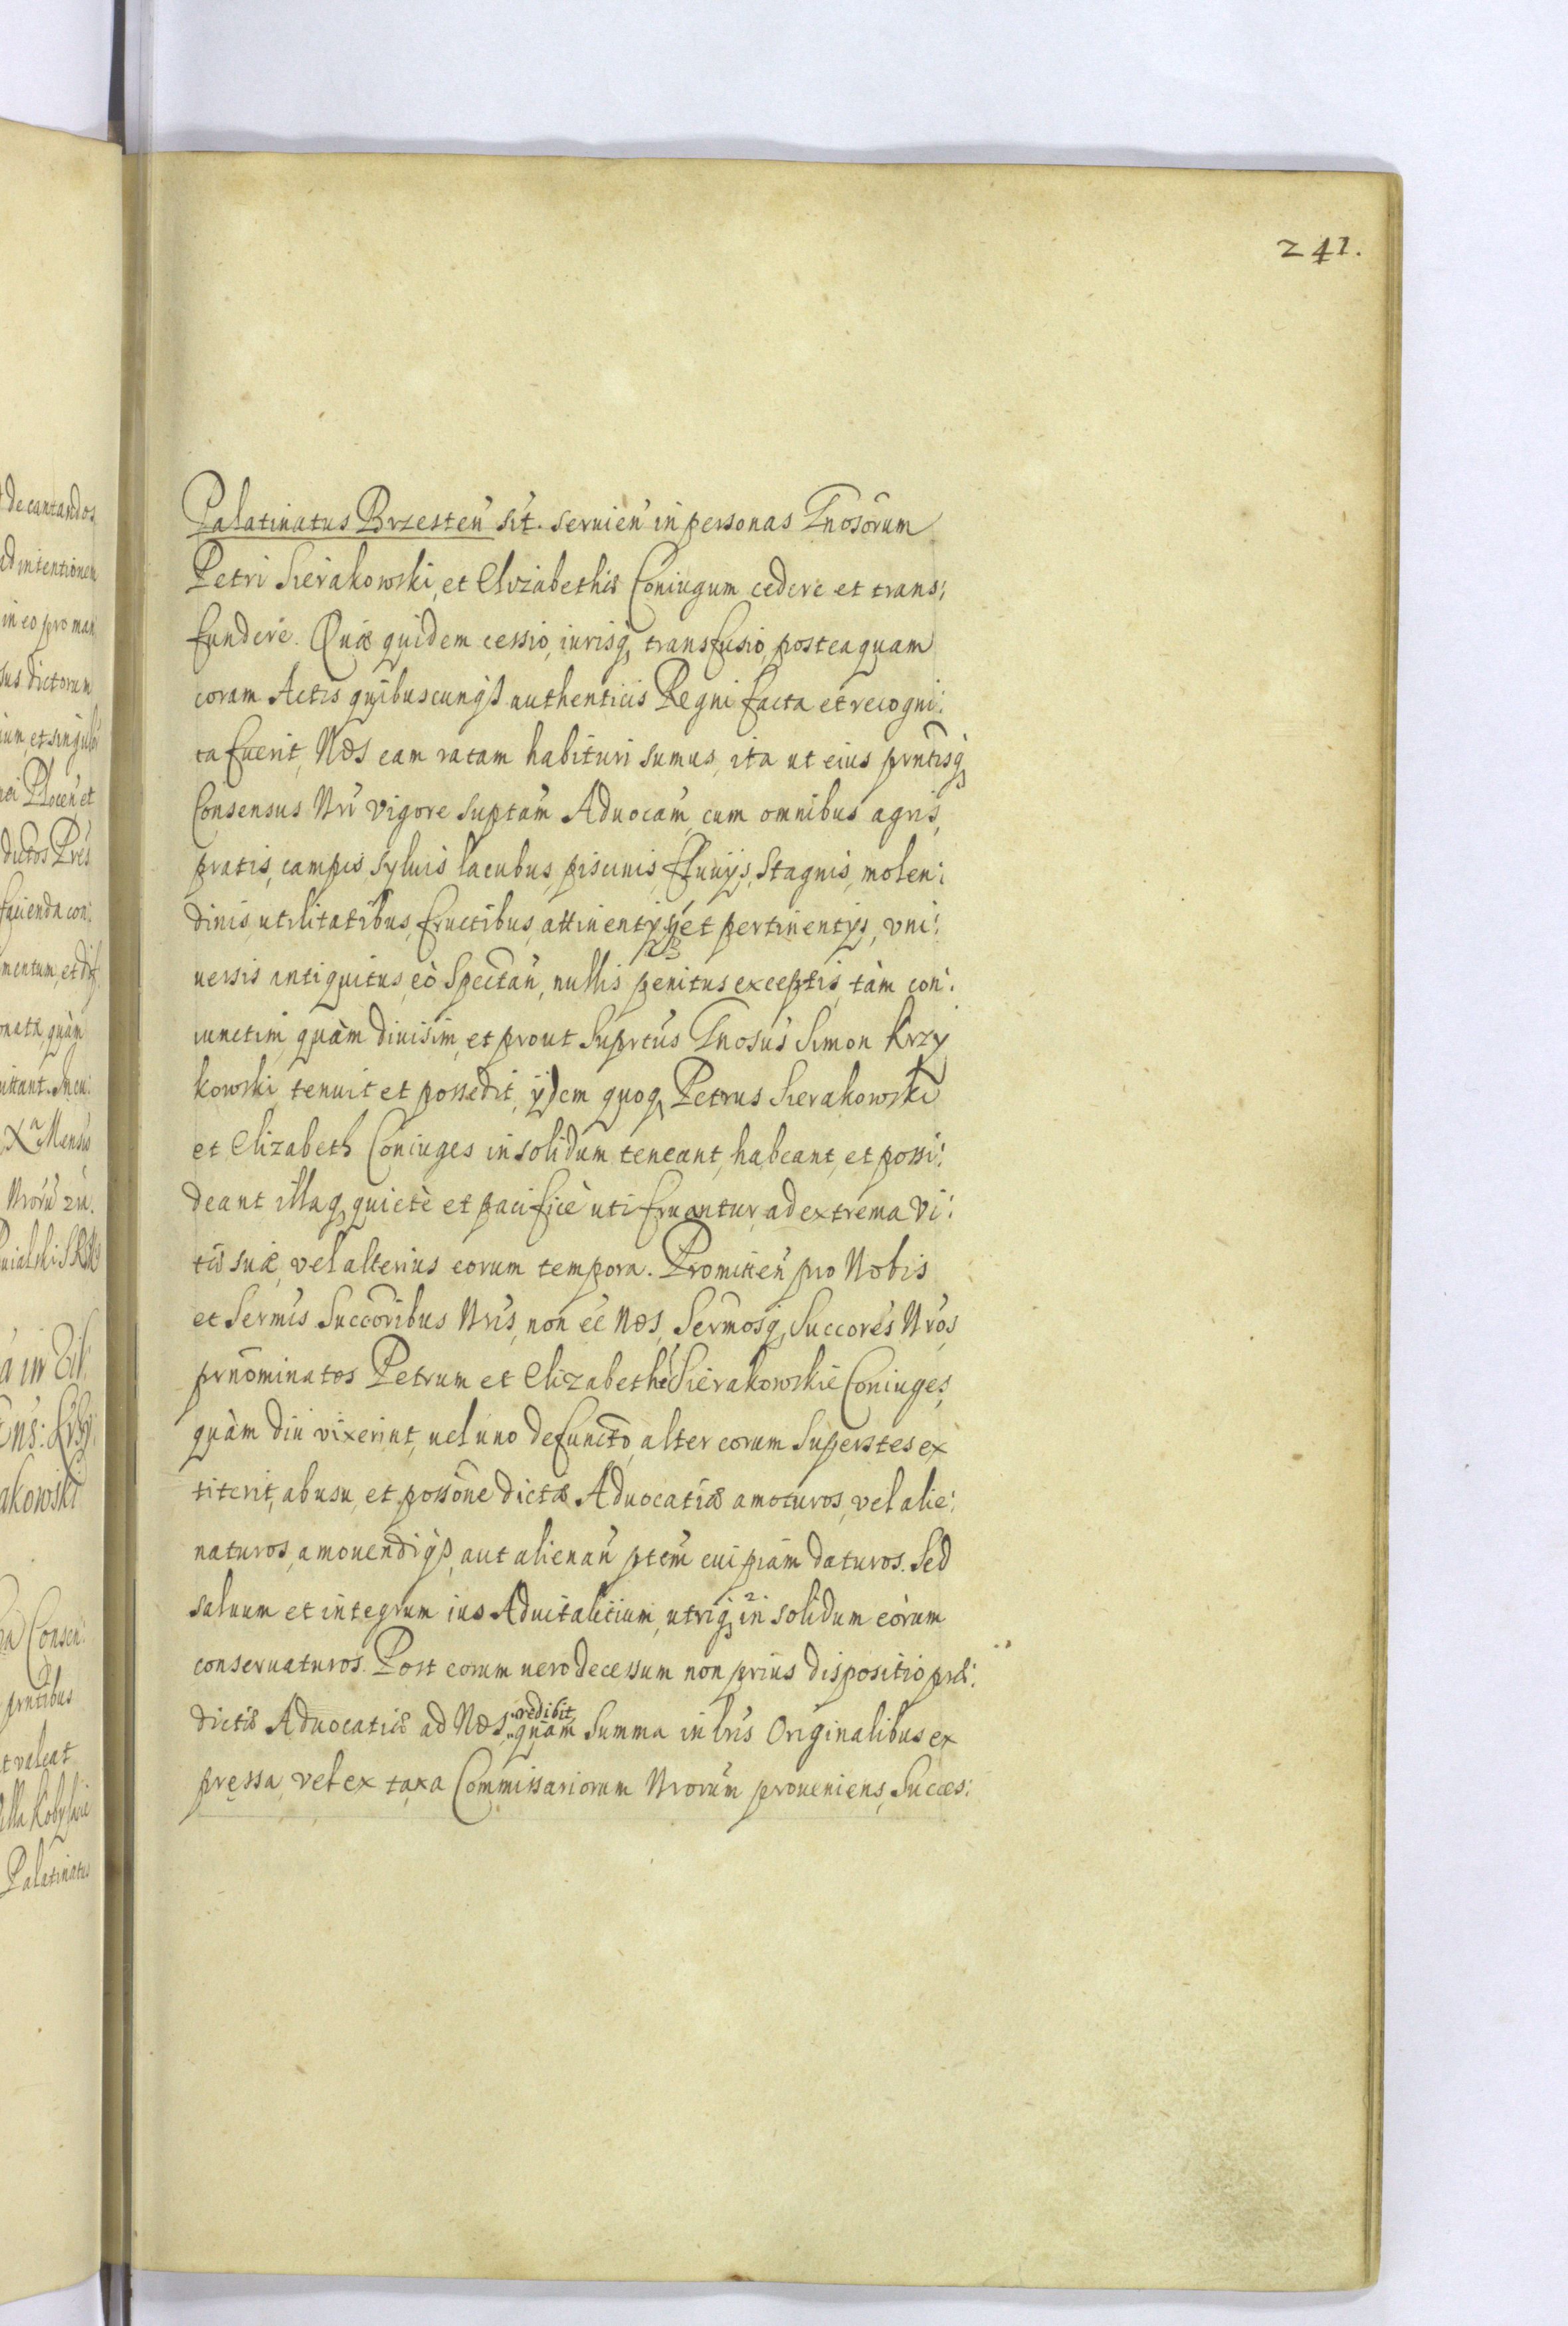 241.
Palatinatus Brzesteń sit. seruień in personas Gnosorum
Petri Sierakowski, et Elizabethæ Coniugum cedere et trans:
fundere. Quæ quidem cessio, iurisq, transfusio, posteaquam
coram Actis quibuscunqß authenticis Regni facta et recogni:
ta fuerit, Nos eam ratam habituri sumus, ita ut eius prntisq
Consensus Nri vigore suptam Aduocam, cum omnibus agris,
pratis, campis, syluis lacubus, piscinis, fluuijs, stagnis, molen:
dinis, utilitatibus, fructibus, attinentijs et pertinentijs, vni:
uersis antiquitus eò spectań, nullis penitus exceptis, tàm con:
iunctim quàm diuisim, et prout suprtus Gnosus Simon Krzy
kowski tenuit et possedit, ijdem quoq, Petrus Sierakowski
et Elizabeth Coniuges in solidum teneant, habeant, et possi:
deant illaq, quietè et pacificè uti fruantur, ad extrema vi:
tæ suæ, vel alterius eorum tempora. Promitteń pro Nobis
et Sermis Succoribus Nris, non eé Nos, Sermosq, Succores Nros
prnominatos Petrum et Elizabethę Sierakowskie Coniuges,
quàm diu vixerint, uel uno defuncto, alter eorum superstes ex
titerit, ab usu, et possone dictæ Aduocatiæ amoturos, vel alie:
naturos, amouendiqß, aut alienań ptem cuipiam daturos. Sed
saluum et integrum ius Aduitalitium, utriq, in solidum eorum
conseruaturos. Post eorum uero decessum non prius dispositio præ:
dictæ Aduocatiæ ad Nos redibit, quam summa in lris Originalibus ex
pressa, vel ex taxa Commissariorum Nrorum proueniens, Succes: